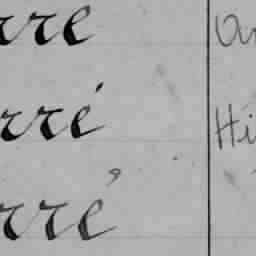 rre
rré
Hi
rré